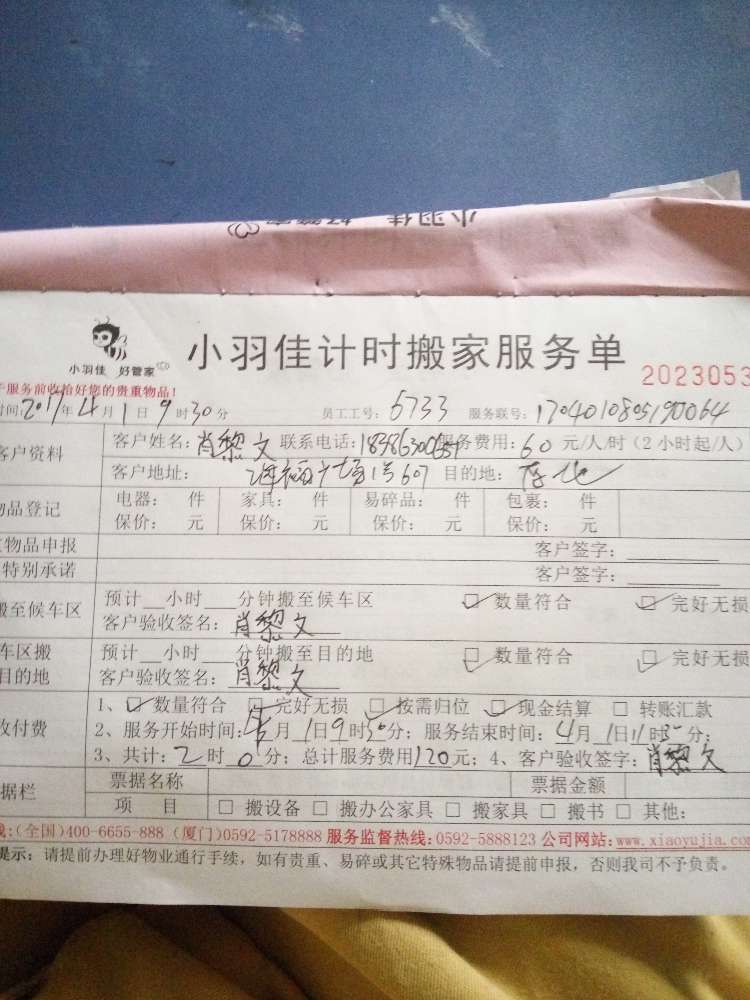 小羽佳 好管家
小羽佳 好管家
小羽佳计时搬家服务单
2023053
服务前收拾好您的贵重物品！
时间:2017年4月1日9时30分 员工工号:6733 服务联号:170401080519
客户资料 客户姓名:肖黎文 联系电话: 服务费用:60元/人/时(2小时起/人)
客户地址: 1号607 目的地:
物品登记 电器: 件 家具: 件 易碎品: 件 包裹: 件
保价: 元 保价: 元 保价: 元 保价: 元
物品申报 客户签字:
特别承诺 客户签字:
搬至候车区 预计__小时__分钟搬至候车区 ☑数量符合 ☑完好无损
客户验收签名:肖黎文
车区搬 预计__小时__分钟搬至目的地 ☑数量符合 ☑完好无损
目的地 客户验收签名:肖黎文
收付费 1、☑数量符合 ☑完好无损 ☑按需归位 ☑现金结算 □转账汇款
2、服务开始时间:4月1日9时30分; 服务结束时间:4月1日11时30分;
3、共计:2时0分; 总计服务费用120元; 4、客户验收签字:肖黎文
据栏 票据名称 票据金额
项 目 □搬设备 □搬办公家具 □搬家具 □搬书 □其他:
线:(全国)400-6655-888 (厦门)0592-5178888 服务监督热线:0592-5888123 公司网站:www.xiaoyujia.com
提示: 请提前办理好物业通行手续，如有贵重、易碎或其它特殊物品请提前申报，否则我司不予负责。